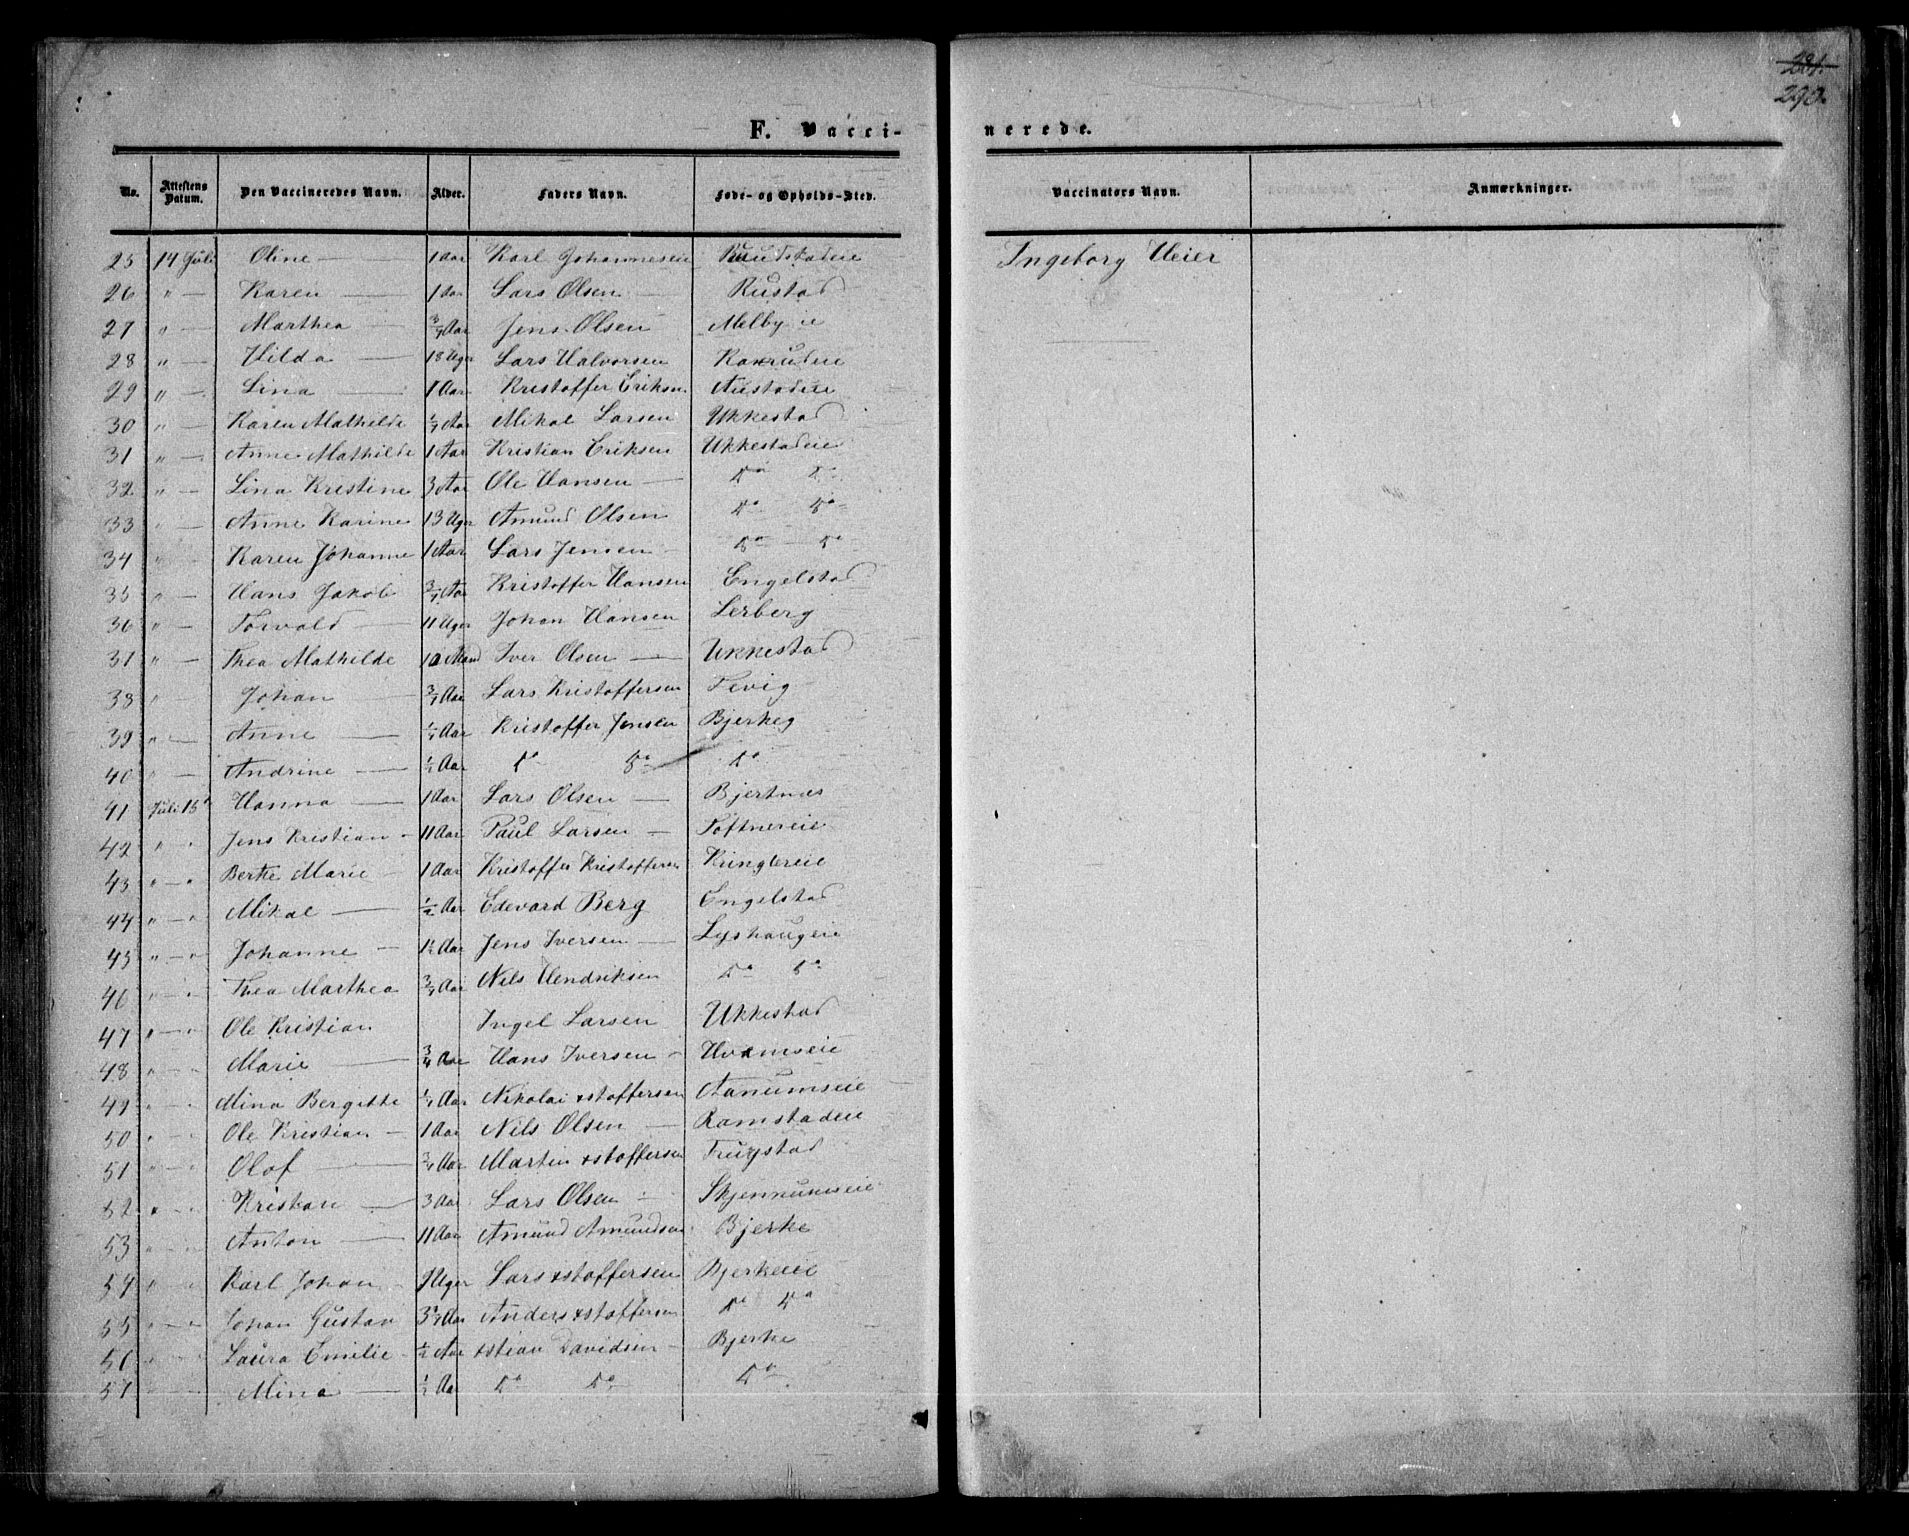 281.
290.
F. Vacci-
nerede.
No. Attestens Datum. Den Vaccineredes Navn. Alder. Faders Navn. Føde- og Opholds-Sted. Vaccinators Navn. Anmærkninger.
25 14 Juli Oline — 1 Aar Karl Johannesen Ruudstadeie Ingeborg Heier
26 " — Karen — 1 Aar Lars Olsen — Rustad
27 " — Marthea — 3/4 Aar Jens Olsen Melbyeie
28 " — Hilda — 18 Uger Lars Halvorsen Raxrudeie
29 " — Lina — 1 Aar Kristoffer Eriksen Austadeie
30 " — Karen Mathilde Aar Mikal Larsen Ukkestad
31 " — Anne Mathilde 1 Aar Kristian Eriksen Ukkestadeie
32 " — Lina Kristine 3 Aar Ole Hansen — Do Do
33 " — Anne Karine 13 Uger Amund Olsen Do Do
34 " — Karen Johanne 1 Aar Lars Jensen — Do Do
35 " — Hans Jakob 3/4 Aar Kristoffer Hansen Engelstad
36 " — Torvald — 11 Uger Johan Hansen Lerberg
37 " — Thea Mathilde 10 Maand Iver Olsen — Ukkestad
38 " — Johan — 3/4 Aar Lars Kristoffersen Tevig
39 " — Anne — Aar Kristoffer Jensen Bjerkeg
40 " — Andrine — 1/2 Aar Do Do Do
41 Juli 15 Hanna — 1 Aar Lars Olsen — Bjertnæs
42 " " Jens Kristian — 11 Aar Paul Larsen — Toftnereie
43 " — " Berte Marie — 1 Aar Kristoffer Kristoffersen Ringlereie
44 " — " Mikal — 1/2 Aar Edevard Berg Engelstad
45 " — " Johanne — 1 1/2 Aar Jens Iversen — Lyshaugeie
46 " — " Thea Marthea 3/4 Aar Nils Hendriksen Do Do
47 " — " Ole Kristian Ingel Larsen Ukkestad
48 " — " Marie — 3/4 Aar Hans Iversen — Hvamseie
49 " — " Mina Bergitte Aar Nikolai xstoffersen Aanumseie
50 " — " Ole Kristian — 1 Aar Nils Olsen — Ramstadeie
51 " — " Olof — 3/4 Aar Martin xstoffersen Frugstad
52 " — " Kristian — 3 Aar Lars Olsen — Skjennumseie
53 " — " Anton — 11 Aar Amund Amundsen Bjerke
54 " — " Karl Johan — Uger Lars xstoffersen Bjerkeeie
55 " — " Johan Gustav Aar Anders xstoffersen Do Do
56 " — " Laura Emilie — 1/2 Aar xstian Davidsen — Bjerke
57 " — " Mina — 1/2 Aar Do Do Do